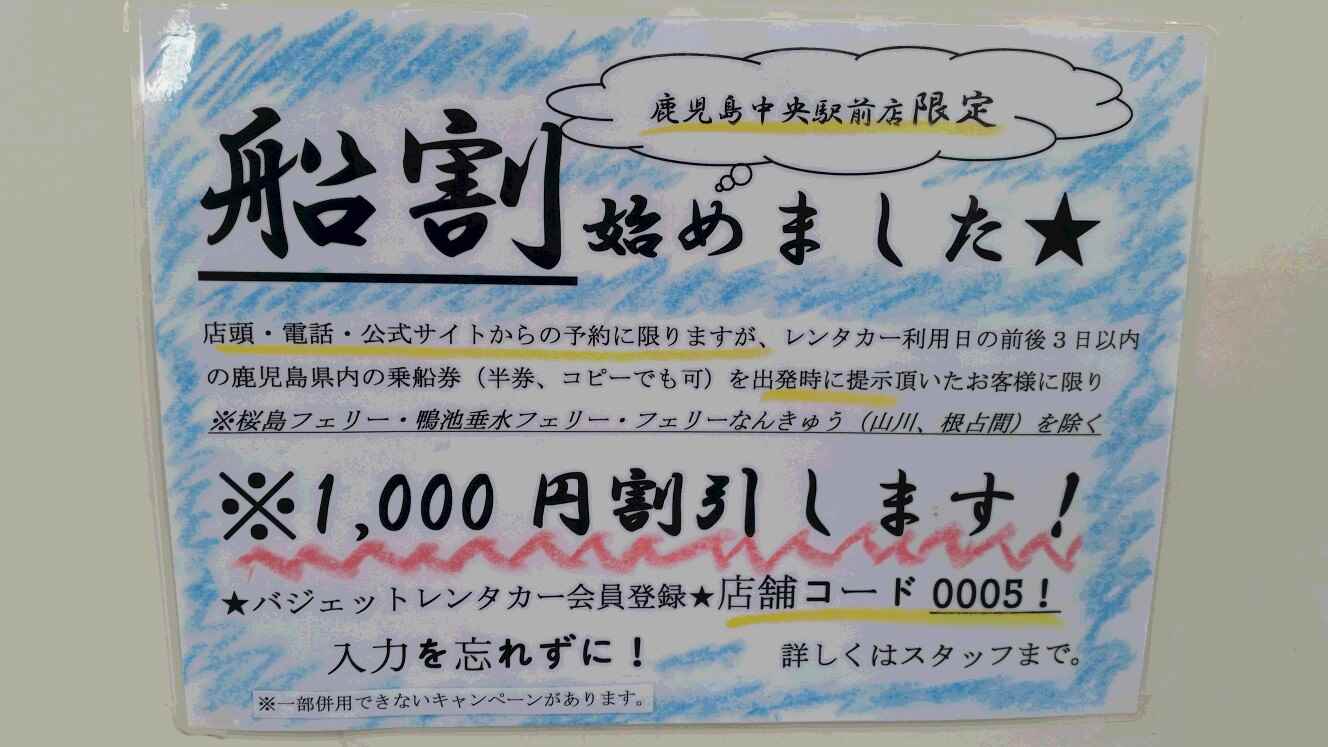 鹿児島中央駅前店限定
船割始めました★
店頭・電話・公式サイトからの予約に限りますが、レンタカー利用日の前後３日以内
の鹿児島県内の乗船券（半券、コピーでも可）を出発時に提示頂いたお客様に限り
※桜島フェリー・鴨池垂水フェリー・フェリーなんきゅう（山川、根占間）を除く
※1,000円割引します！
★バジェットレンタカー会員登録★店舗コード 0005！
入力を忘れずに！ 詳しくはスタッフまで。
※一部併用できないキャンペーンがあります。